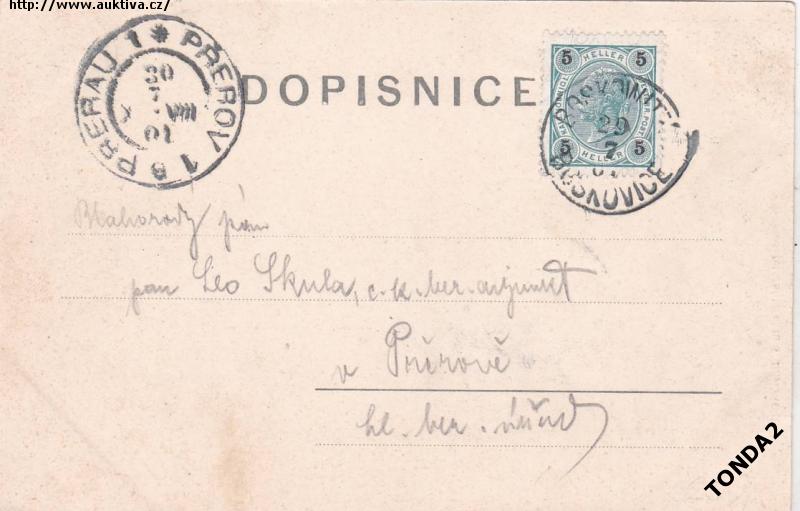 http://www.auktiva.cz/
PRERAU 1 * PŘEROV 1
30
7
VIII
01
DOPISNICE
5 HELLER 5
5 HELLER 5
BOSKOWITZ
29
7
01
BOSKOVICE
Blahorodý pán
pan Leo Skula, c. k. ber. adjunkt
v Přerově
hl. ber. úřad
TONDA2